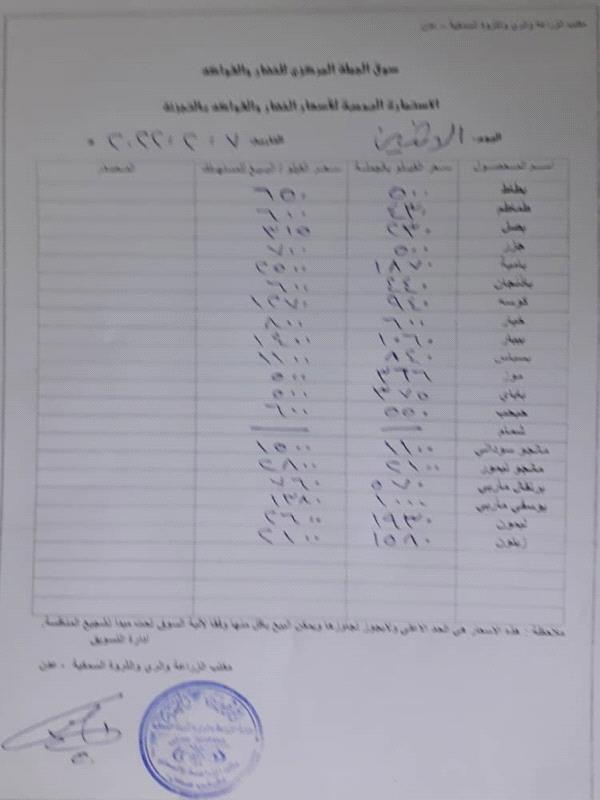 مكتب الزراعة والري والثروة السمكية - عدن
سوق الجملة المركزي للخضار والفواكه
الاستمارة اليومية لأسعار الخضار والفواكه بالتجزئة
اليوم: الاثنين التاريخ: ٧ / ٢ / ٢٠٢٢ م
اسم المحصول سعر الكيلو بالجملة سعر الكيلو / البيع للمستهلك المصدر
بطاط ٥٠٠ ٦٥٠
طماطم ٤٣٠ ٦٠٠
بصل ٢٣٠ ٣١٥
جزر ٥٠٠ ٧٠٠
بامية ١٨٧٠ ٢٥٠٠
باذنجان ٤٤٠ ٦٠٠
كوسه ٩٤٠ ١٢٧٠
خيار ٦٠٠ ٨٠٠
بيبار ١٠٦٠ ١٤٠٠
بسباس ٨٤٠ ١١٠٠
موز ٣٣٦ ٥٠٠
باباي ٣٧٥ ٥٠٠
حبحب ٥٥٠ ٦٠٠
شمام — —
مانجو سوداني ١١٠٠ ١٥٠٠
مانجو تيمور ٢١٠٠ ٢٨٠٠
برتقال مأربي ٥٧٠ ٧٦٠
يوسفي مأربي ١٠٠٠ ١٣٨٠
ليمون ١٩٣٠ ٢٦٠٠
زيتون ١٥٨٠ ٢١٠٠
ملاحظة : هذه الاسعار هي الحد الاعلى ولايجوز تجاوزها ويمكن البيع بأقل منها وفقا لآلية السوق لحث مبدأ تشجيع المنافسة.
ادارة التسويق
مكتب الزراعة والري والثروة السمكية - عدن